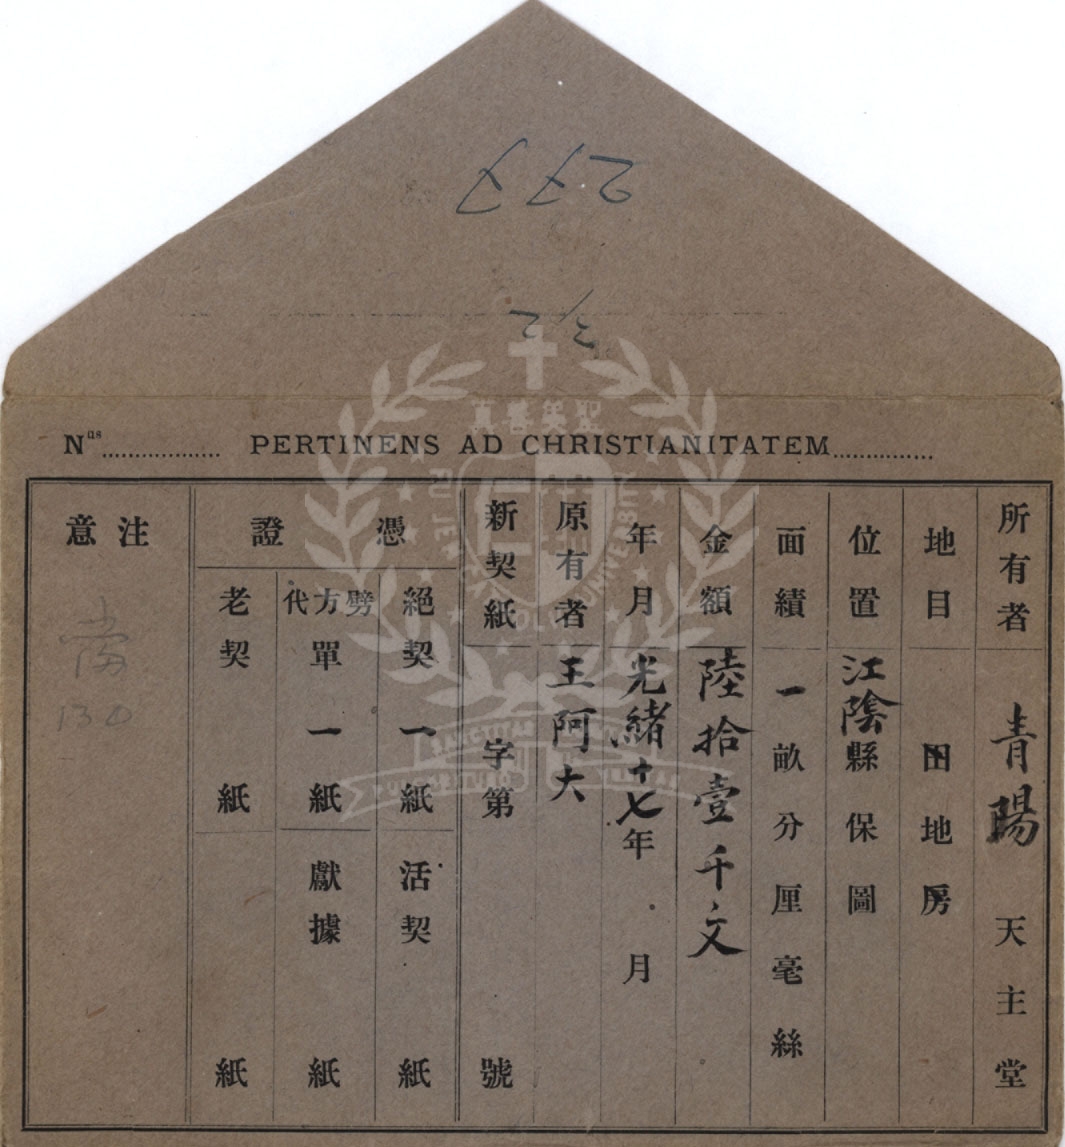 Nus.................. PERTINENS AD CHRISTIANITATEM...............
所有者 青陽天主堂
地目 田地房
位置 江陰縣保圖
面績 一畝分厘毫絲
金額 陸拾壹千文
年月 光緒十七年 月
原有者 王阿大
新契紙 新字第 號
憑證
絕契 一紙 活契 紙
劈方代單 一紙 獻據 紙
老契 紙 紙
注意
130